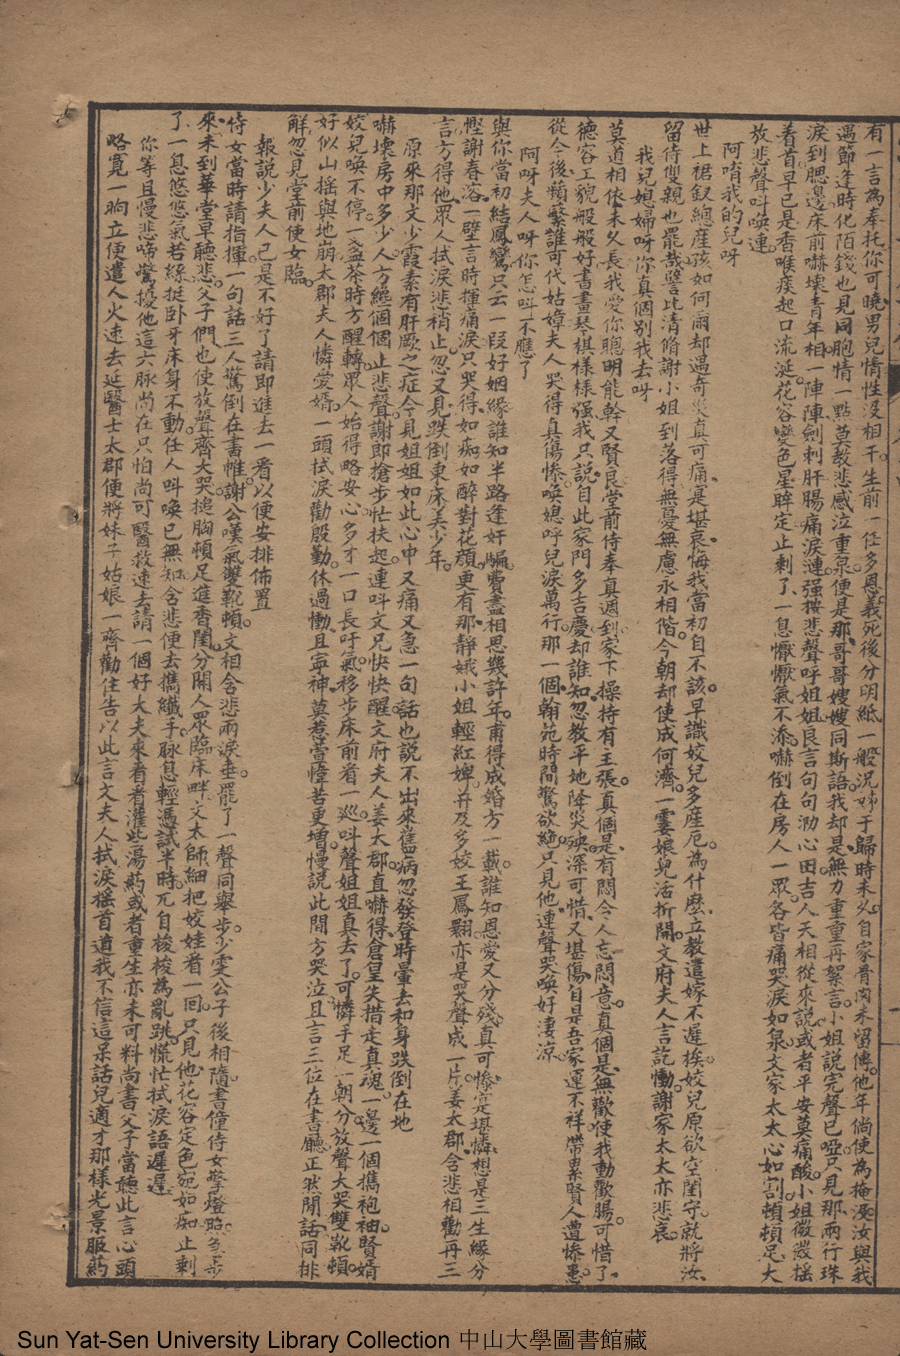 有一言為奉托你可曉男兒情性沒相干生前一任多恩義死後分明紙一般況姊于歸時未久自家骨肉未留傳他年倘使為掩漫汝與我
遇節逢時化陌錢也見同胞情一點莫教悲感泣重泉便是那哥哥嫂嫂同斯語我却是無力重重再絮言小姐說完聲已啞只見那兩行珠
淚到腮邊床前嚇壞青年相一陣陣劍刺肝腸痛淚漣强按悲聲呼姐姐良言句句泐心田吉人天相從來說或者平安莫痛酸小姐微微搖
着首早已是香喉痰起口流涎花容變色星眸定止剩了一息懨懨氣不添嚇倒在房人一眾各皆痛哭淚如泉文家太太心如割頓頓足大
放悲聲呌喚連
阿唷我的兒呀
世上裙釵總産孩如何爾却遇奇災真可痛寔堪哀悔我當初自不該早識姣兒多産厄為什麽立教遣嫁不遲挨姣兒原欲空閨守就將汝
留侍雙親也罷哉譬比清脩謝小姐到落得無憂無慮永相偕今朝却使成何濟一霎娘兒活折開文府夫人言訖慟謝家太太亦悲哀
我兒媳婦呀你真個别我去呀
莫道相依未久長我愛你聰明能幹又賢良堂前侍奉真週到家下操持有主張真個是有悶令人忘悶意真個是無歡使我動歡腸可惜了
德容工貌般般好書畫琴棋樣樣强我只說自此家門多吉慶却誰知忽教平地降災殃深可惜又堪傷自是吾家運不祥帶累賢人遭慘患
從今後頻繁誰可代姑嫜夫人哭得真傷慘喚媳呼兒淚萬行那一個翰苑時間驚欲絶只見他連聲哭喚好淒凉
阿呀夫人呀你怎呌不應了
與你當初結鳳鸞只云一段好姻緣誰知半路逢奸騙費盡相思幾許年甫得成婚方一載誰知恩愛又分殘真可慘寔堪憐想是三生緣分
慳謝春溶一壁言時揮痛淚只哭得如痴如醉對花顔更有那靜娥小姐輕紅婢并及多姣王鳳翾亦是哭聲成一片姜太郡含悲相勸再三
言方得他眾人拭淚悲稍止忽又見跌倒東床美少年
原來那文少霞素有肝厥之症今見姐姐如此心中又痛又急一句話也說不出來舊病忽發登時暈去和身跌倒在地
嚇壞房中多少人方纔個個止悲聲謝即搶步忙扶起連呌文兄快快醒文府夫人姜太郡直嚇得倉皇失措走真魂一邊一個攜袍袖賢婿
姣兒喚不停一盞茶時方醒轉眾人始得略安心多才一口長吁氣移步床前看一巡呌聲姐姐真去了可憐手足一朝分放聲大哭雙靴頓
好似山揺與地崩太郡夫人憐愛婿一頭拭淚勸殷勤休過慟且寜神莫惹萱幃苦更增慢說此間方哭泣且言三位在書廳正然閒話同排
解忽見堂前使女臨
報說少夫人已是不好了請即進去一看以便安排佈置
侍女當時請指揮一句話三人驚倒在書帷謝公嘆氣雙靴頓文相含悲兩淚垂罷了一聲同舉步少雯公子後相隨書僮侍女擎燈照急步
來未到華堂早聽悲父子們也使放聲齊大哭搥胸頓足進香閨分開人眾臨床畔文太師細把姣娃看一回只見他花容定色宛如痴止剩
了一息悠悠氣若絲挺卧牙床身不動任人呌喚已無知含悲便去攜纖手脉息輕憑試半時兀自梭梭為亂跳慌忙拭淚語遲遲
你等且慢悲啼驚擾他這六脉尚在只怕尚可醫救速去請一個好大夫來看看灌些湯葯或者重生亦未可料尚書父子當聽此言心頭
略寬一晌立便遣人火速去延醫士太郡便將妹子姑娘一齊勸住告以此言文夫人拭淚揺首道我不信這呆話兒適才那樣光景服葯
Sun Yat-Sen University Library Collection 中山大學圖書館藏